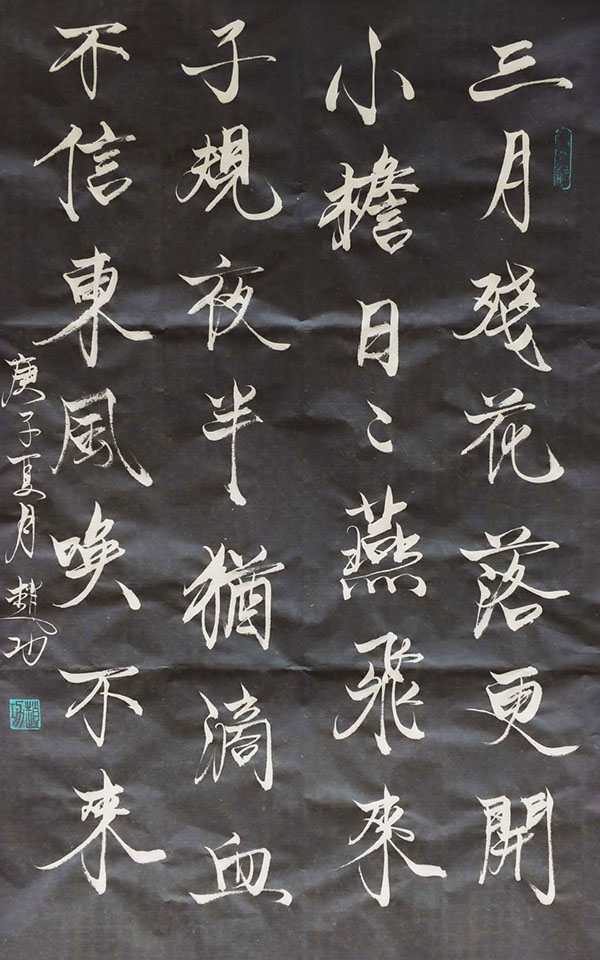 三月残花落更開
小檐日〻燕飛來
子規夜半猶滴血
不信東風喚不来
庚子夏月趙功